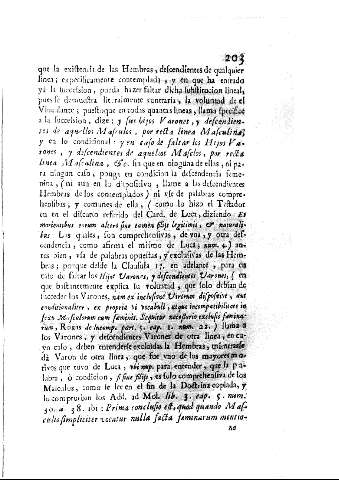 203
que la existencia de las Hembras, descendientes de qualquier
linea; especificamente contemplada, y en que ha entrado
yà la succession, pueda hazer faltar dicha substitucion lineal,
pues se demuestra literalmente contraria, la voluntad de el
Vinculante; puesto que en todas quantas lineas, llama
a la succession, dize: y sus hijos Varones, y descendien-
tes de aquellos Masculos, por recta linea Masculina;
y en lo condicional: y en caso de faltar los Hijos Va-
rones, y descendientes de aquellos Masclos, por recta
linea Masculina, &c. sin que en ninguna de ellas, ni pa-
ra ningun caso, ponga en condicion la descendencia feme-
nina, (ni aun en la dispositiva, llame a los descendientes
Hembras de los contemplados) ni vse de palabras compre-
hensibas, y comunes de ella, (como lo hizo el Testador
en el discurso referido del Card. de Luca, diziendo: Et
morientibus eorum altero sine tamen filijs legitimis, & naturali-
bus. Los quales, son comprehensivas, de vna, y otra des-
cendencia, como afirma el mismo de Luca; num. 4.) an-
tes bien, vsa de palabras opuestas, y exclusivas de las Hem-
bras; porque desde la Clausula 17. en adelante, para en
caso de faltar los Hijos Varones, y descendientes Varones, (en
que bastantemente explica su voluntad, que solo debian de
succeder los Varones, nam ex inclusione Virorum dispositive, aut
conditionaliter, ex propria vi vocabuli, atque incompatibilitate in-
ter Masculorum cum feminis. Sequitur necessario exclusio femina-
rum, Roxas de Incomp. part. 1. cap. 2. num. 22.) llama a
los Varones, y descendientes Varones de otra linea, en cu-
yo caso, deben entenderse excluidas la Hembras,
dà Varon de otra linea, que fue vno de los mayores mo-
tives que tuvo de Luca, vbi sup. para entender, que la pala-
labra, ò condicion, si sine filijs, es solo comprehensiva de los
Masculos, como se lee en el fin de la Doctrina copiada, y
lo comprueban los Add. ad Mol. lib. 3. cap. 5. num.
30. a 38. ibi: Prima conclusio est, quod quando Mas-
culus simpliciter vocatur nulla facta feminarum mentio-
ne